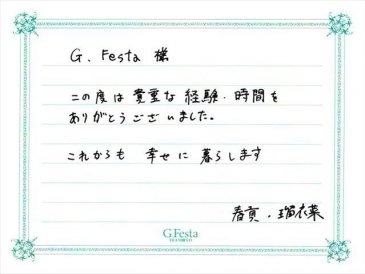 G. Festa 様
この度は貴重な経験・時間を
ありがとうございました。
これからも 幸せに 暮らします
春貢・瑠衣菜
G.Festa